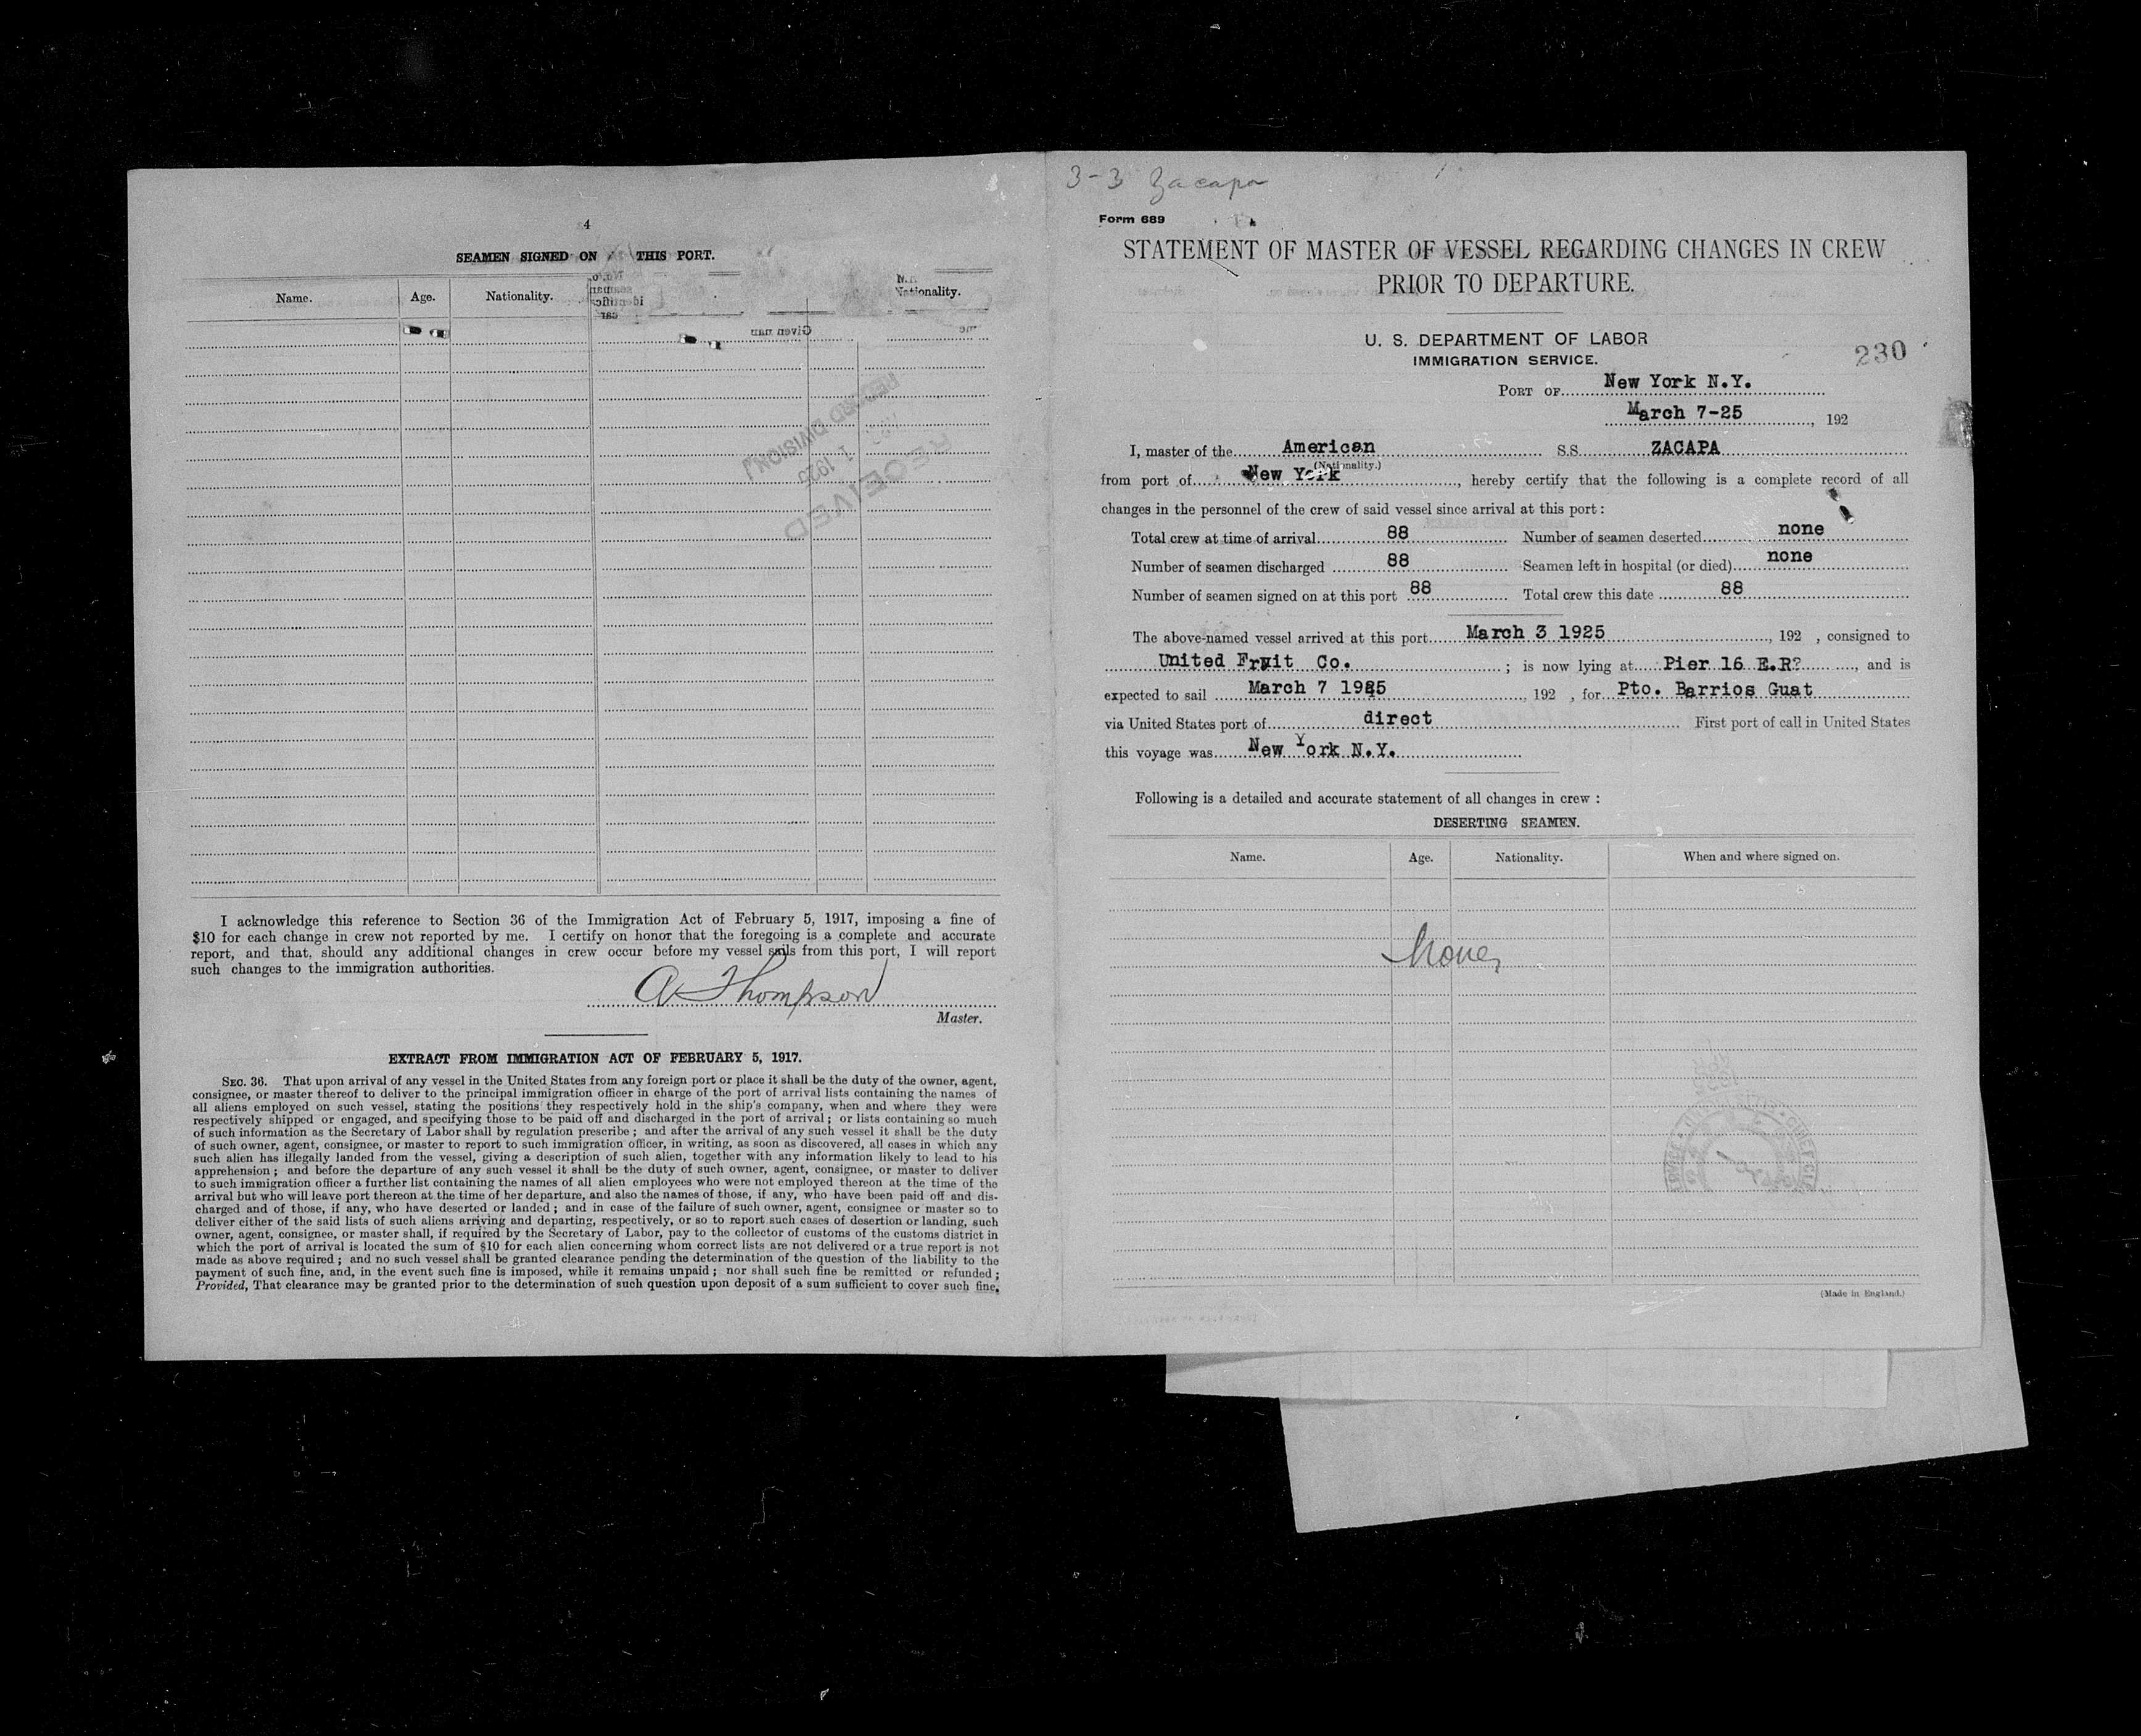 4
SEAMEN SIGNED ON THIS PORT.
Name. Age. Nationality. Nationality.
RECEIVED
1 1925
RECORD DIVISION
I acknowledge this reference to Section 36 of the Immigration Act of February 5, 1917, imposing a fine of
$10 for each change in crew not reported by me. I certify on honor that the foregoing is a complete and accurate
report, and that, should any additional changes in crew occur before my vessel sails from this port, I will report
such changes to the immigration authorities.
A Thompson
Master.
EXTRACT FROM IMMIGRATION ACT OF FEBRUARY 5, 1917.
SEC. 36. That upon arrival of any vessel in the United States from any foreign port or place it shall be the duty of the owner, agent,
consignee, or master thereof to deliver to the principal immigration officer in charge of the port of arrival lists containing the names of
all aliens employed on such vessel, stating the positions they respectively hold in the ship's company, when and where they were
respectively shipped or engaged, and specifying those to be paid off and discharged in the port of arrival; or lists containing so much
of such information as the Secretary of Labor shall by regulation prescribe; and after the arrival of any such vessel it shall be the duty
of such owner, agent, consignee, or master to report to such immigration officer, in writing, as soon as discovered, all cases in which any
such alien has illegally landed from the vessel, giving a description of such alien, together with any information likely to lead to his
apprehension; and before the departure of any such vessel it shall be the duty of such owner, agent, consignee, or master to deliver
to such immigration officer a further list containing the names of all alien employees who were not employed thereon at the time of the
arrival but who will leave port thereon at the time of her departure, and also the names of those, if any, who have been paid off and dis-
charged and of those, if any, who have deserted or landed; and in case of the failure of such owner, agent, consignee or master so to
deliver either of the said lists of such aliens arriving and departing, respectively, or so to report such cases of desertion or landing, such
owner, agent, consignee, or master shall, if required by the Secretary of Labor, pay to the collector of customs of the customs district in
which the port of arrival is located the sum of $10 for each alien concerning whom correct lists are not delivered or a true report is not
made as above required; and no such vessel shall be granted clearance pending the determination of the question of the liability to the
payment of such fine, and, in the event such fine is imposed, while it remains unpaid; nor shall such fine be remitted or refunded;
Provided, That clearance may be granted prior to the determination of such question upon deposit of a sum sufficient to cover such fine.
3-3 Zacapa
Form 689
STATEMENT OF MASTER OF VESSEL REGARDING CHANGES IN CREW
PRIOR TO DEPARTURE.
U. S. DEPARTMENT OF LABOR
IMMIGRATION SERVICE.
230
PORT OF New York N.Y.
March 7-25, 192
I, master of the American S.S. ZACAPA
(Nationality.)
from port of New York, hereby certify that the following is a complete record of all
changes in the personnel of the crew of said vessel since arrival at this port:
Total crew at time of arrival 88 Number of seamen deserted none
Number of seamen discharged 88 Seamen left in hospital (or died) none
Number of seamen signed on at this port 88 Total crew this date 88
The above-named vessel arrived at this port March 3 1925, 192 , consigned to
United Fruit Co. ; is now lying at Pier 16 E.R?, and is
expected to sail March 7 1925 192 , for Pto. Barrios Guat
via United States port of direct First port of call in United States
this voyage was New York N.Y.
Following is a detailed and accurate statement of all changes in crew:
DESERTING SEAMEN.
Name. Age. Nationality. When and where signed on.
None
(Made in England.)